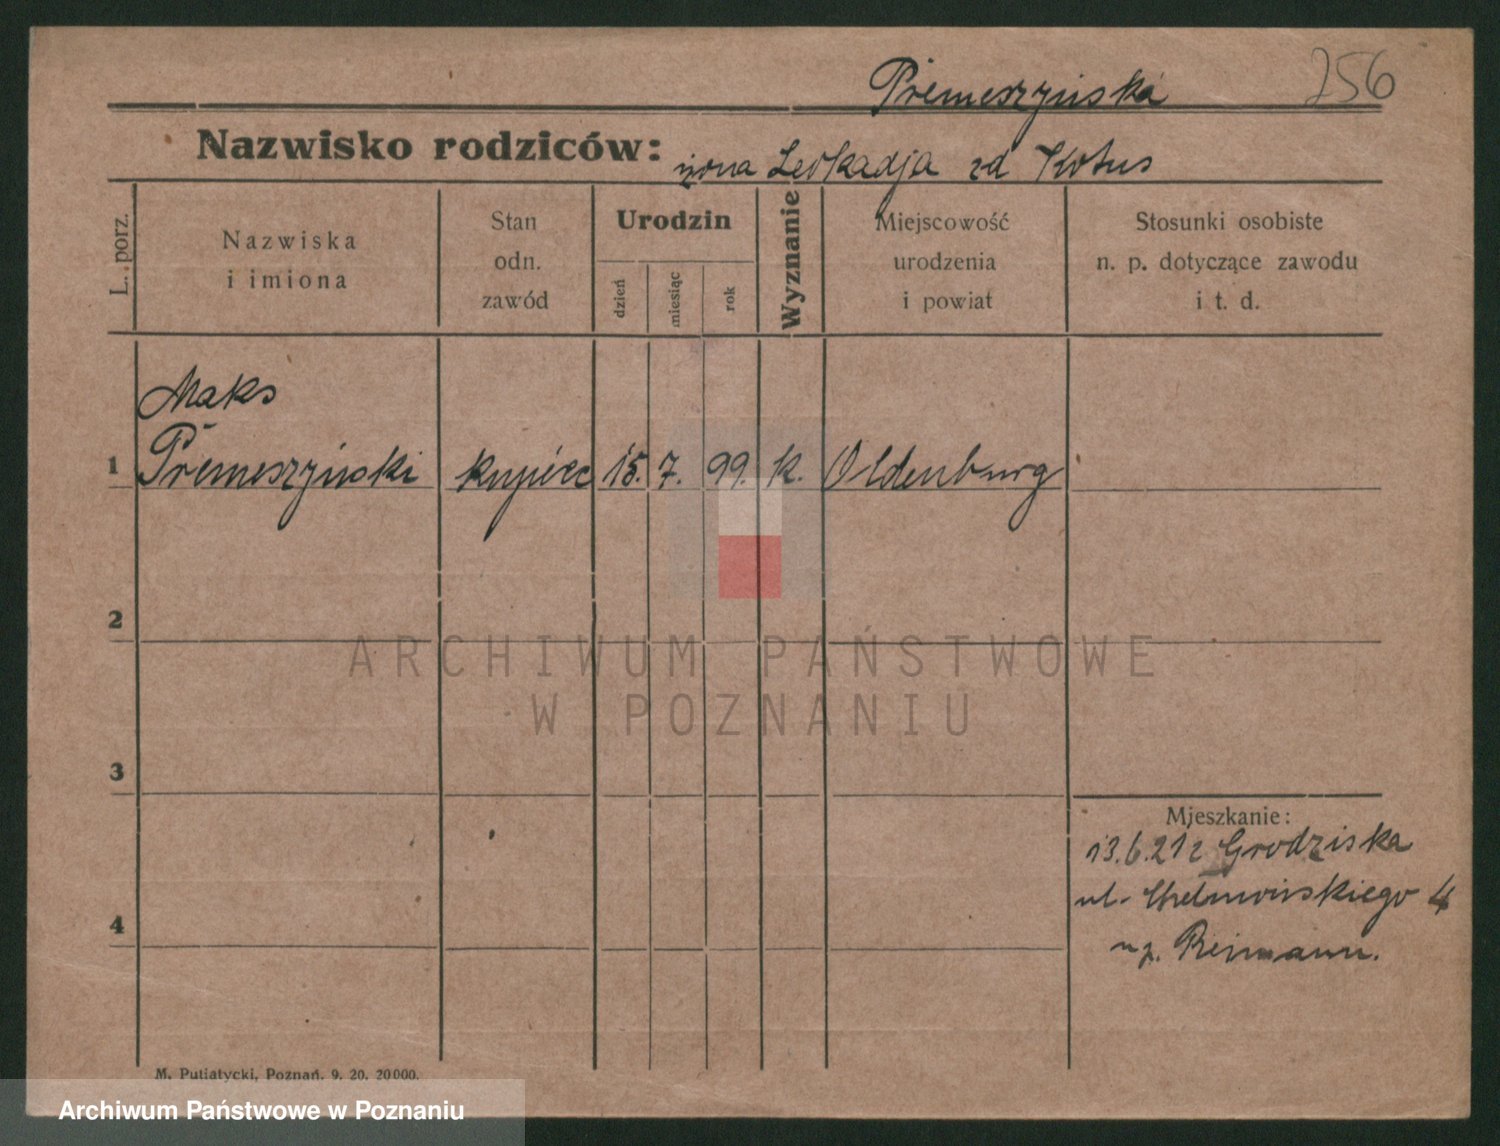 Premeszyńska
756
Nazwisko rodziców: żona Leokadja zd Kotus
L. porz.
Nazwiska
i imiona
Stan
odn.
zawód
Urodzin
dzień
miesiąc
rok
Wyznanie
Miejscowość
urodzenia
i powiat
Stosunki osobiste
n. p. dotyczące zawodu
i t. d.
Maks
1 Premeszyński kupiec 15. 7. 99. k. Oldenburg
2
ARCHIWUM PAŃSTWOWE
W POZNANIU
3
Mjeszkanie:
13.6.21 z Grodziska
ul. Chełmońskiego 4
4
Reimann.
M. Putiatycki, Poznań. 9. 20. 20000.
Archiwum Państwowe w Poznaniu